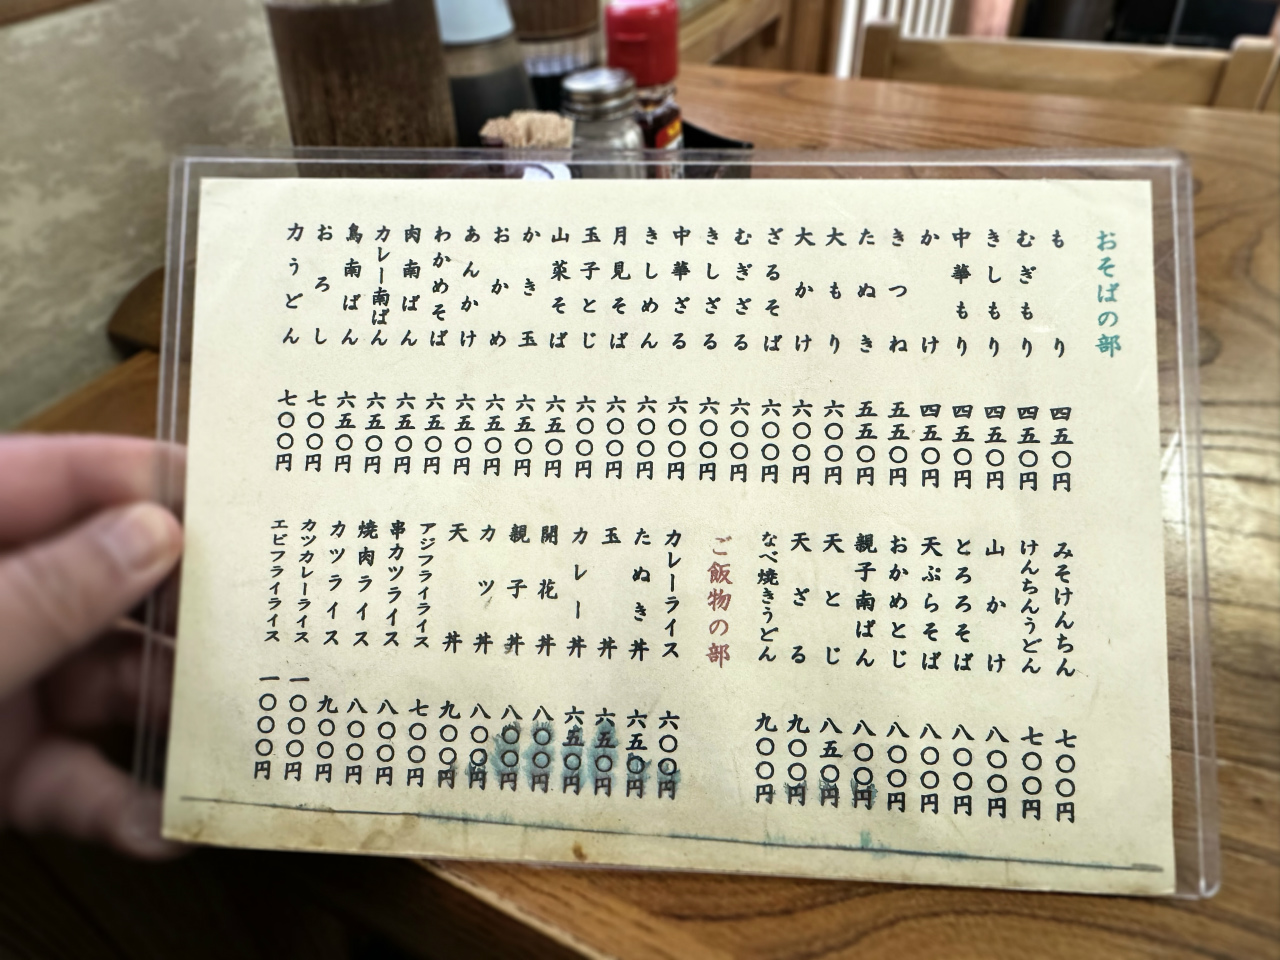 おそばの部
もり 四五〇円
むぎもり 四五〇円
きしもり 四五〇円
中華もり 四五〇円
かけ 四五〇円
きつね 五五〇円
たぬき 五五〇円
大もり 六〇〇円
大かけ 六〇〇円
ざるそば 六〇〇円
むぎざる 六〇〇円
きしざる 六〇〇円
中華ざる 六〇〇円
きしめん 六〇〇円
月見そば 六〇〇円
玉子とじ 六〇〇円
山菜そば 六五〇円
かき玉 六五〇円
おかめ 六五〇円
あんかけ 六五〇円
わかめそば 六五〇円
肉南ばん 六五〇円
カレー南ばん 六五〇円
鳥南ばん 六五〇円
おろし 七〇〇円
力うどん 七〇〇円
みそけんちん 七〇〇円
けんちんうどん 七〇〇円
山かけ 八〇〇円
とろろそば 八〇〇円
天ぷらそば 八〇〇円
おかめとじ 八〇〇円
親子南ばん 八〇〇円
天とじ 八五〇円
天ざる 九〇〇円
なべ焼きうどん 九〇〇円
ご飯物の部
カレーライス 六〇〇円
たぬき丼 六五〇円
玉丼 六五〇円
カレー丼 六五〇円
開花丼 八〇〇円
親子丼 八〇〇円
カツ丼 八〇〇円
天丼 九〇〇円
アジフライライス 七〇〇円
串カツライス 八〇〇円
焼肉ライス 八〇〇円
カツライス 九〇〇円
カツカレーライス 一〇〇〇円
エビフライライス 一〇〇〇円